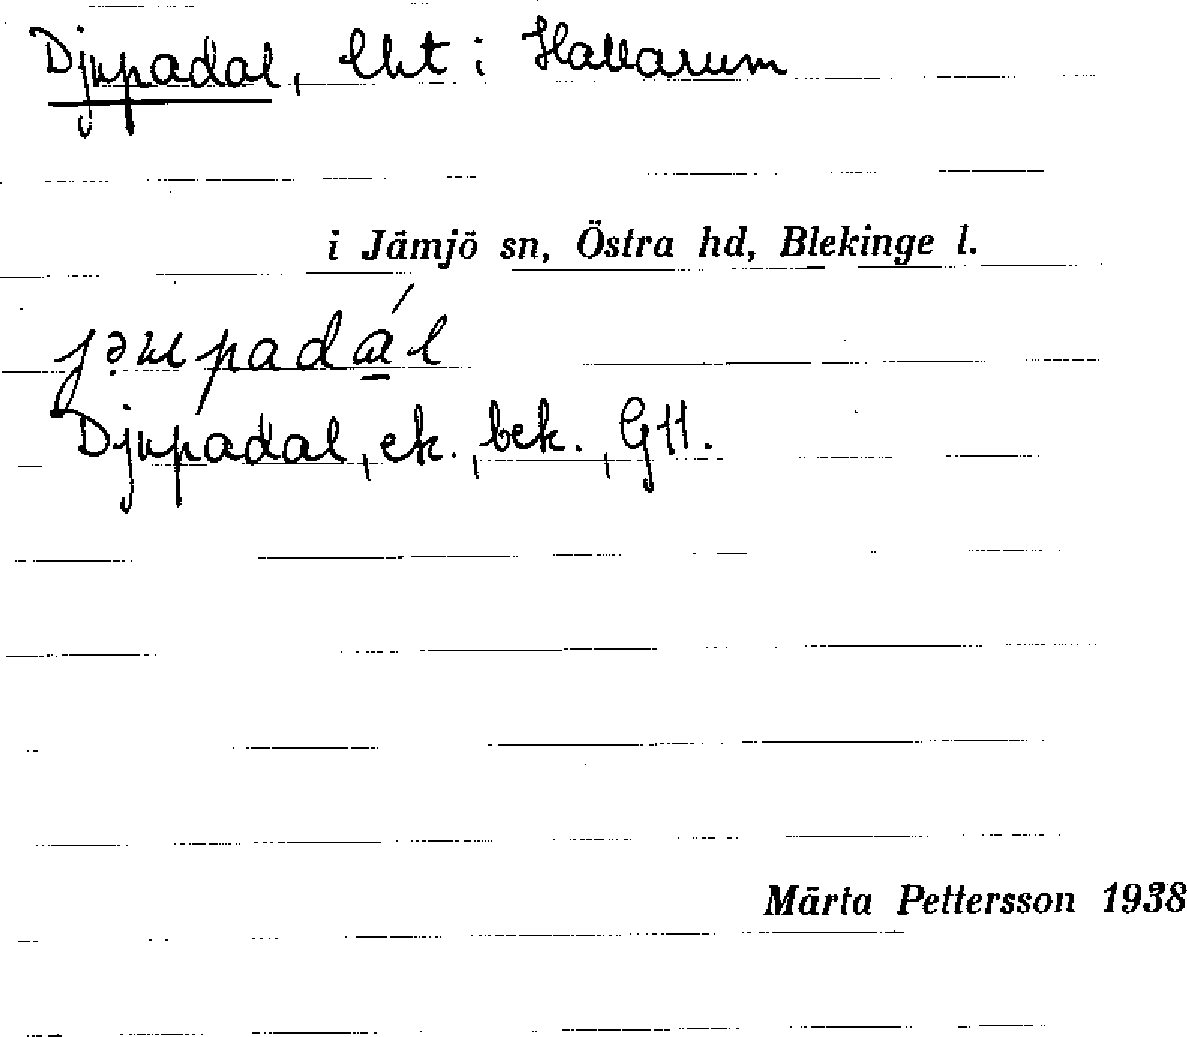 Djupadal, lht i Hallarum
i Jämjö sn, Östra hd, Blekinge l.
Djupadal, ek., bek., G11.
Märta Pettersson 1938